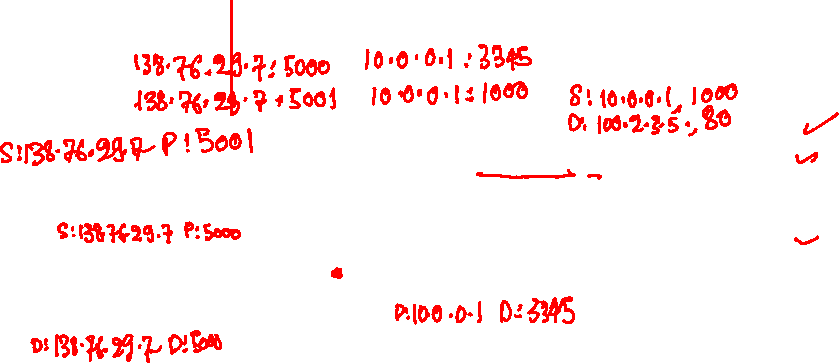 138.76.29.7:5000 10.0.0.1:3345
138.76.29.7:5001 10.0.0.1:1000
S:10.0.0.1, 1000
D:100.2.3.5., 80
S:138.76.29.7 P:5001
S:138.76.29.7 P:5000
D:10.0.0.1 D:3345
D:138.76.29.7 D:5000